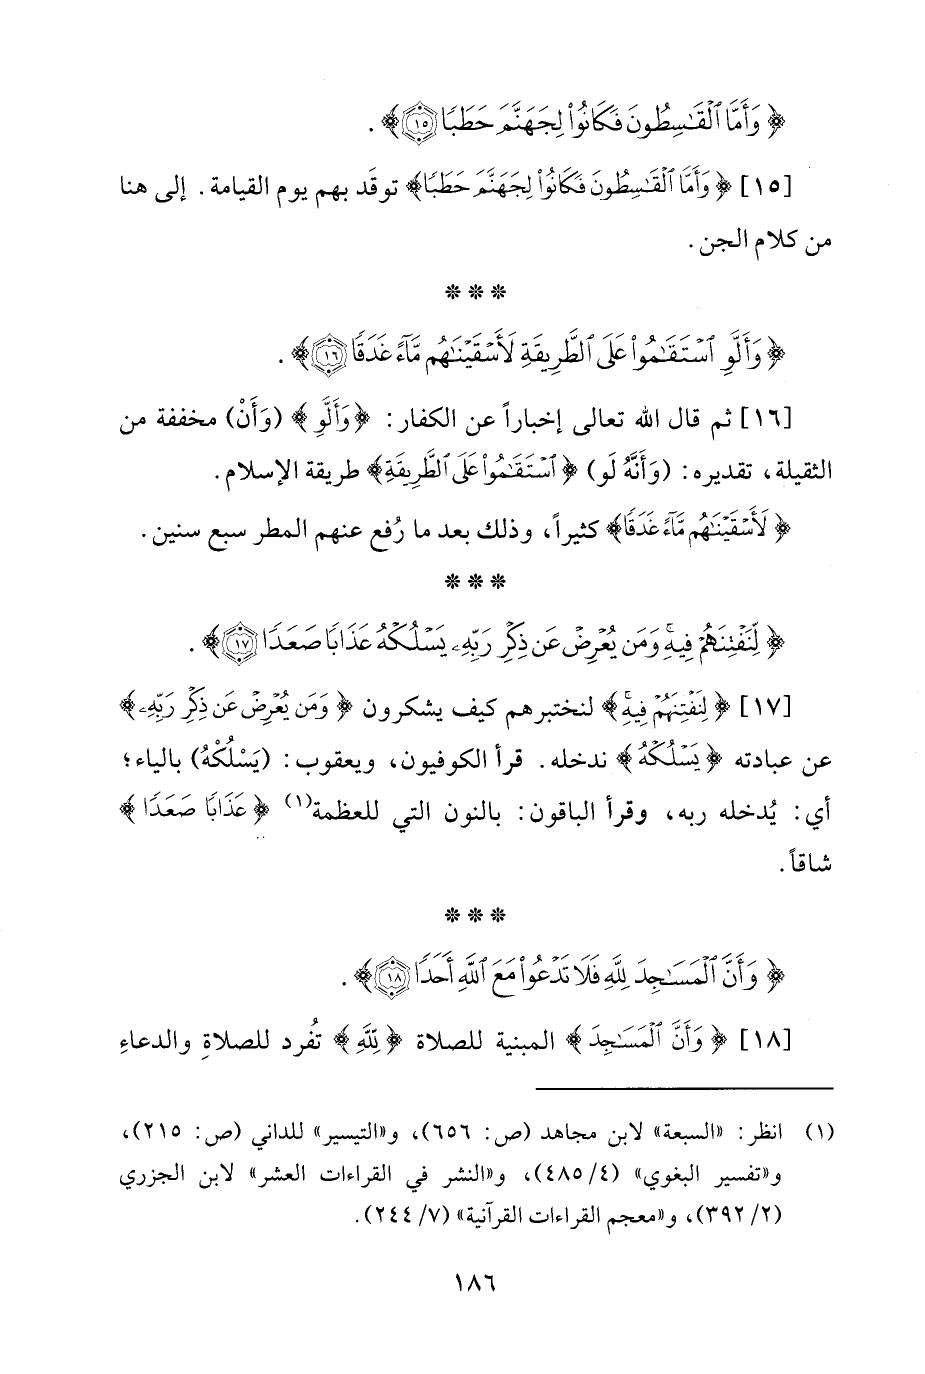 ﴿وَأَمَّا ٱلْقَـٰسِطُونَ فَكَانُوا۟ لِجَهَنَّمَ حَطَبًا ۝١٥﴾.
[١٥] ﴿وَأَمَّا ٱلْقَـٰسِطُونَ فَكَانُوا۟ لِجَهَنَّمَ حَطَبًا﴾ توقَد بهم يوم القيامة. إلى هنا
من كلام الجن.
* * *
﴿وَأَلَّوِ ٱسْتَقَـٰمُوا۟ عَلَى ٱلطَّرِيقَةِ لَأَسْقَيْنَـٰهُم مَّآءً غَدَقًا ۝١٦﴾.
[١٦] ثم قال الله تعالى إخباراً عن الكفار: ﴿وَأَلَّوِ﴾ (وَأَنْ) مخففة من
الثقيلة، تقديره: (وَأَنَّهُ لَو) ﴿ٱسْتَقَـٰمُوا۟ عَلَى ٱلطَّرِيقَةِ﴾ طريقة الإسلام.
﴿لَأَسْقَيْنَـٰهُم مَّآءً غَدَقًا﴾ كثيراً، وذلك بعد ما رُفع عنهم المطر سبع سنين.
* * *
﴿لِّنَفْتِنَهُمْ فِيهِ ۚ وَمَن يُعْرِضْ عَن ذِكْرِ رَبِّهِۦ يَسْلُكْهُ عَذَابًا صَعَدًا ۝١٧﴾.
[١٧] ﴿لِنَفْتِنَهُمْ فِيهِ ۚ﴾ لنختبرهم كيف يشكرون ﴿وَمَن يُعْرِضْ عَن ذِكْرِ رَبِّهِۦ﴾
عن عبادته ﴿يَسْلُكْهُ﴾ ندخله. قرأ الكوفيون، ويعقوب: (يَسْلُكْهُ) بالياء؛
أي: يُدخله ربه، وقرأ الباقون: بالنون التي للعظمة(١) ﴿عَذَابًا صَعَدًا﴾
شاقاً.
* * *
﴿وَأَنَّ ٱلْمَسَـٰجِدَ لِلَّهِ فَلَا تَدْعُوا۟ مَعَ ٱللَّهِ أَحَدًا ۝١٨﴾.
[١٨] ﴿وَأَنَّ ٱلْمَسَـٰجِدَ﴾ المبنية للصلاة ﴿لِلَّهِ﴾ تُفرد للصلاةِ والدعاءِ
(١) انظر: «السبعة» لابن مجاهد (ص: ٦٥٦)، و«التيسير» للداني (ص: ٢١٥)،
و«تفسير البغوي» (٤/ ٤٨٥)، و«النشر في القراءات العشر» لابن الجزري
(٢/ ٣٩٢)، و«معجم القراءات القرآنية» (٧/ ٢٤٤).
١٨٦